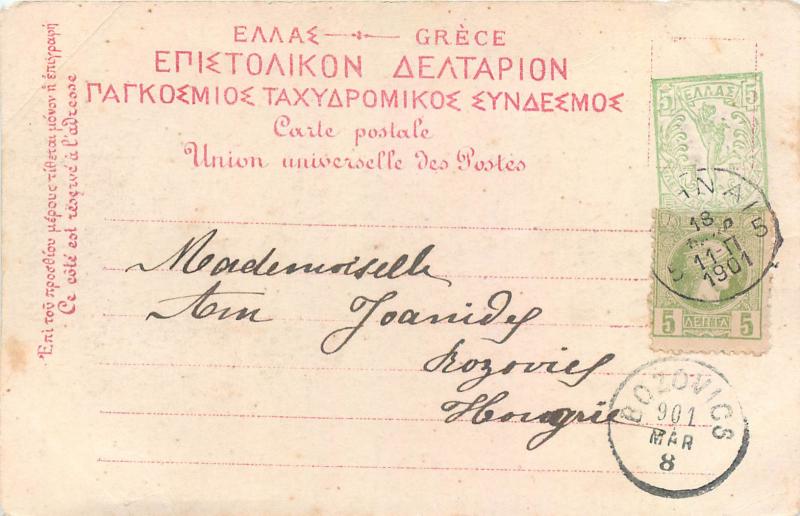 ΕΛΛΑΣ GRÈCE
ΕΠΙΣΤΟΛΙΚΟΝ ΔΕΛΤΑΡΙΟΝ
ΠΑΓΚΟΣΜΙΟΣ ΤΑΧΥΔΡΟΜΙΚΟΣ ΣΥΝΔΕΣΜΟΣ
Carte postale
Union universelle des Postes
Ἐπὶ τοῦ προσθίου μέρους τίθεται μόνον ἡ ἐπιγραφή
Ce côté est réservé à l'adresse
5 ΕΛΛΑΣ 5
18
11-Π
1901
5 5
5 ΛΕΠΤΑ 5
Mademoiselle
Joanides
Bozovics
Hongrie
BOZOVICS
901
MÁR
8